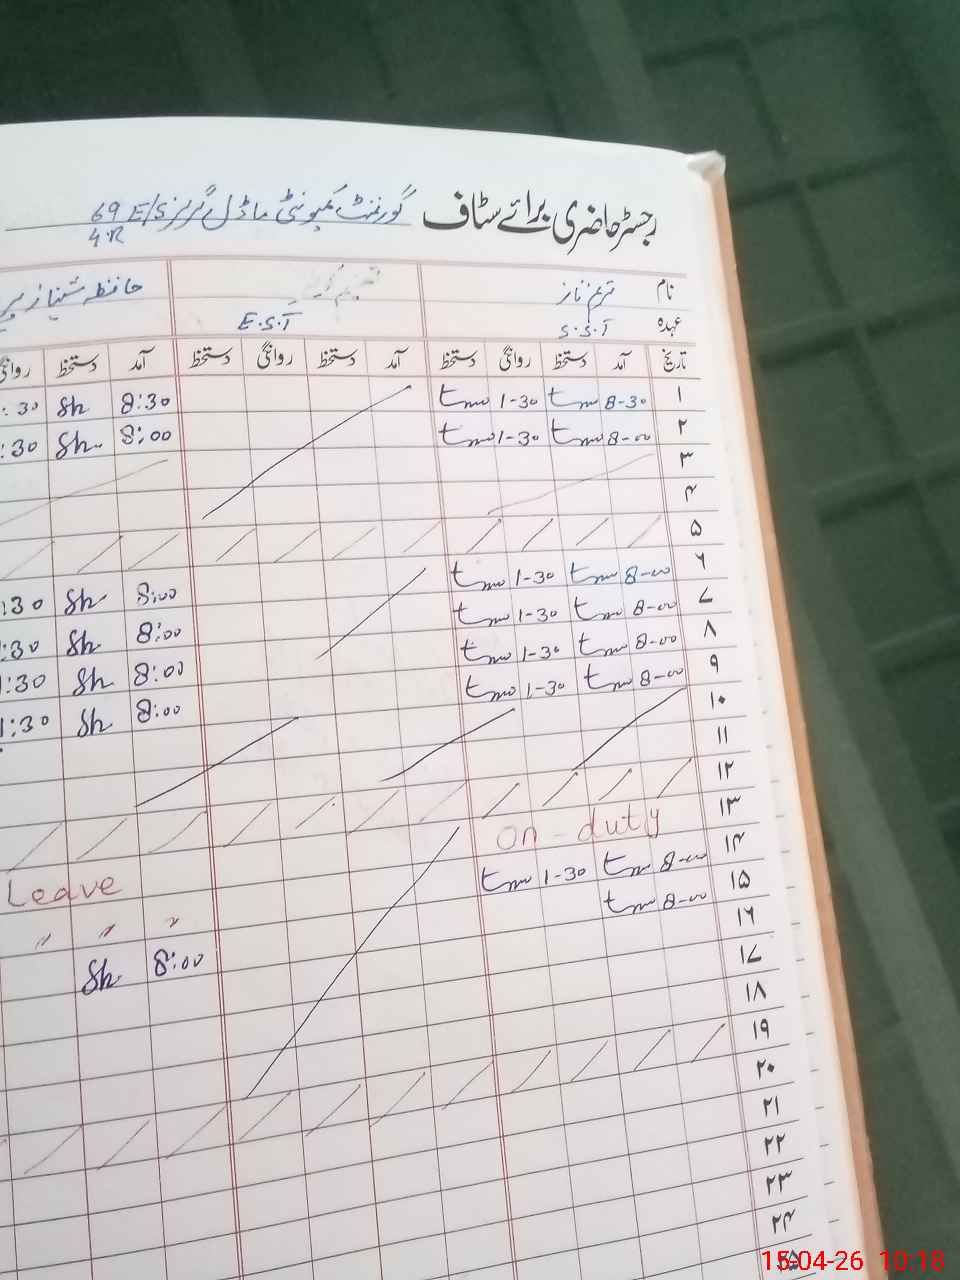 رجسٹر حاضری برائے سٹاف گورنمنٹ کمیونٹی ماڈل گرلز E/S 69
4.R
نام ترنم ناز حافظہ شہناز
عہدہ S.S.T E.S.T
تاریخ آمد دستخط روانگی دستخط آمد دستخط روانگی دستخط آمد دستخط روانگی
۱ 8-30 tm 1-30 tm 8:30 Sh :30
۲ 8-00 tm 1-30 tm 8:00 Sh :30
۳
۴
۵
۶ 8-00 tm 1-30 tm 8:00 Sh :30
۷ 8-00 tm 1-30 tm 8:00 Sh :30
۸ 8-00 tm 1-30 tm 8:00 Sh 1:30
۹ 8-00 tm 1-30 tm 8:00 Sh 1:30
۱۰
۱۱
۱۲
۱۳ on-duty Leave
۱۴ 8-00 tm 1-30 tm " " "
۱۵ 8-00 tm 8:00 Sh
۱۶
۱۷
۱۸
۱۹
۲۰
۲۱
۲۲
۲۳
۲۴
۲۵
15-04-26 10:18